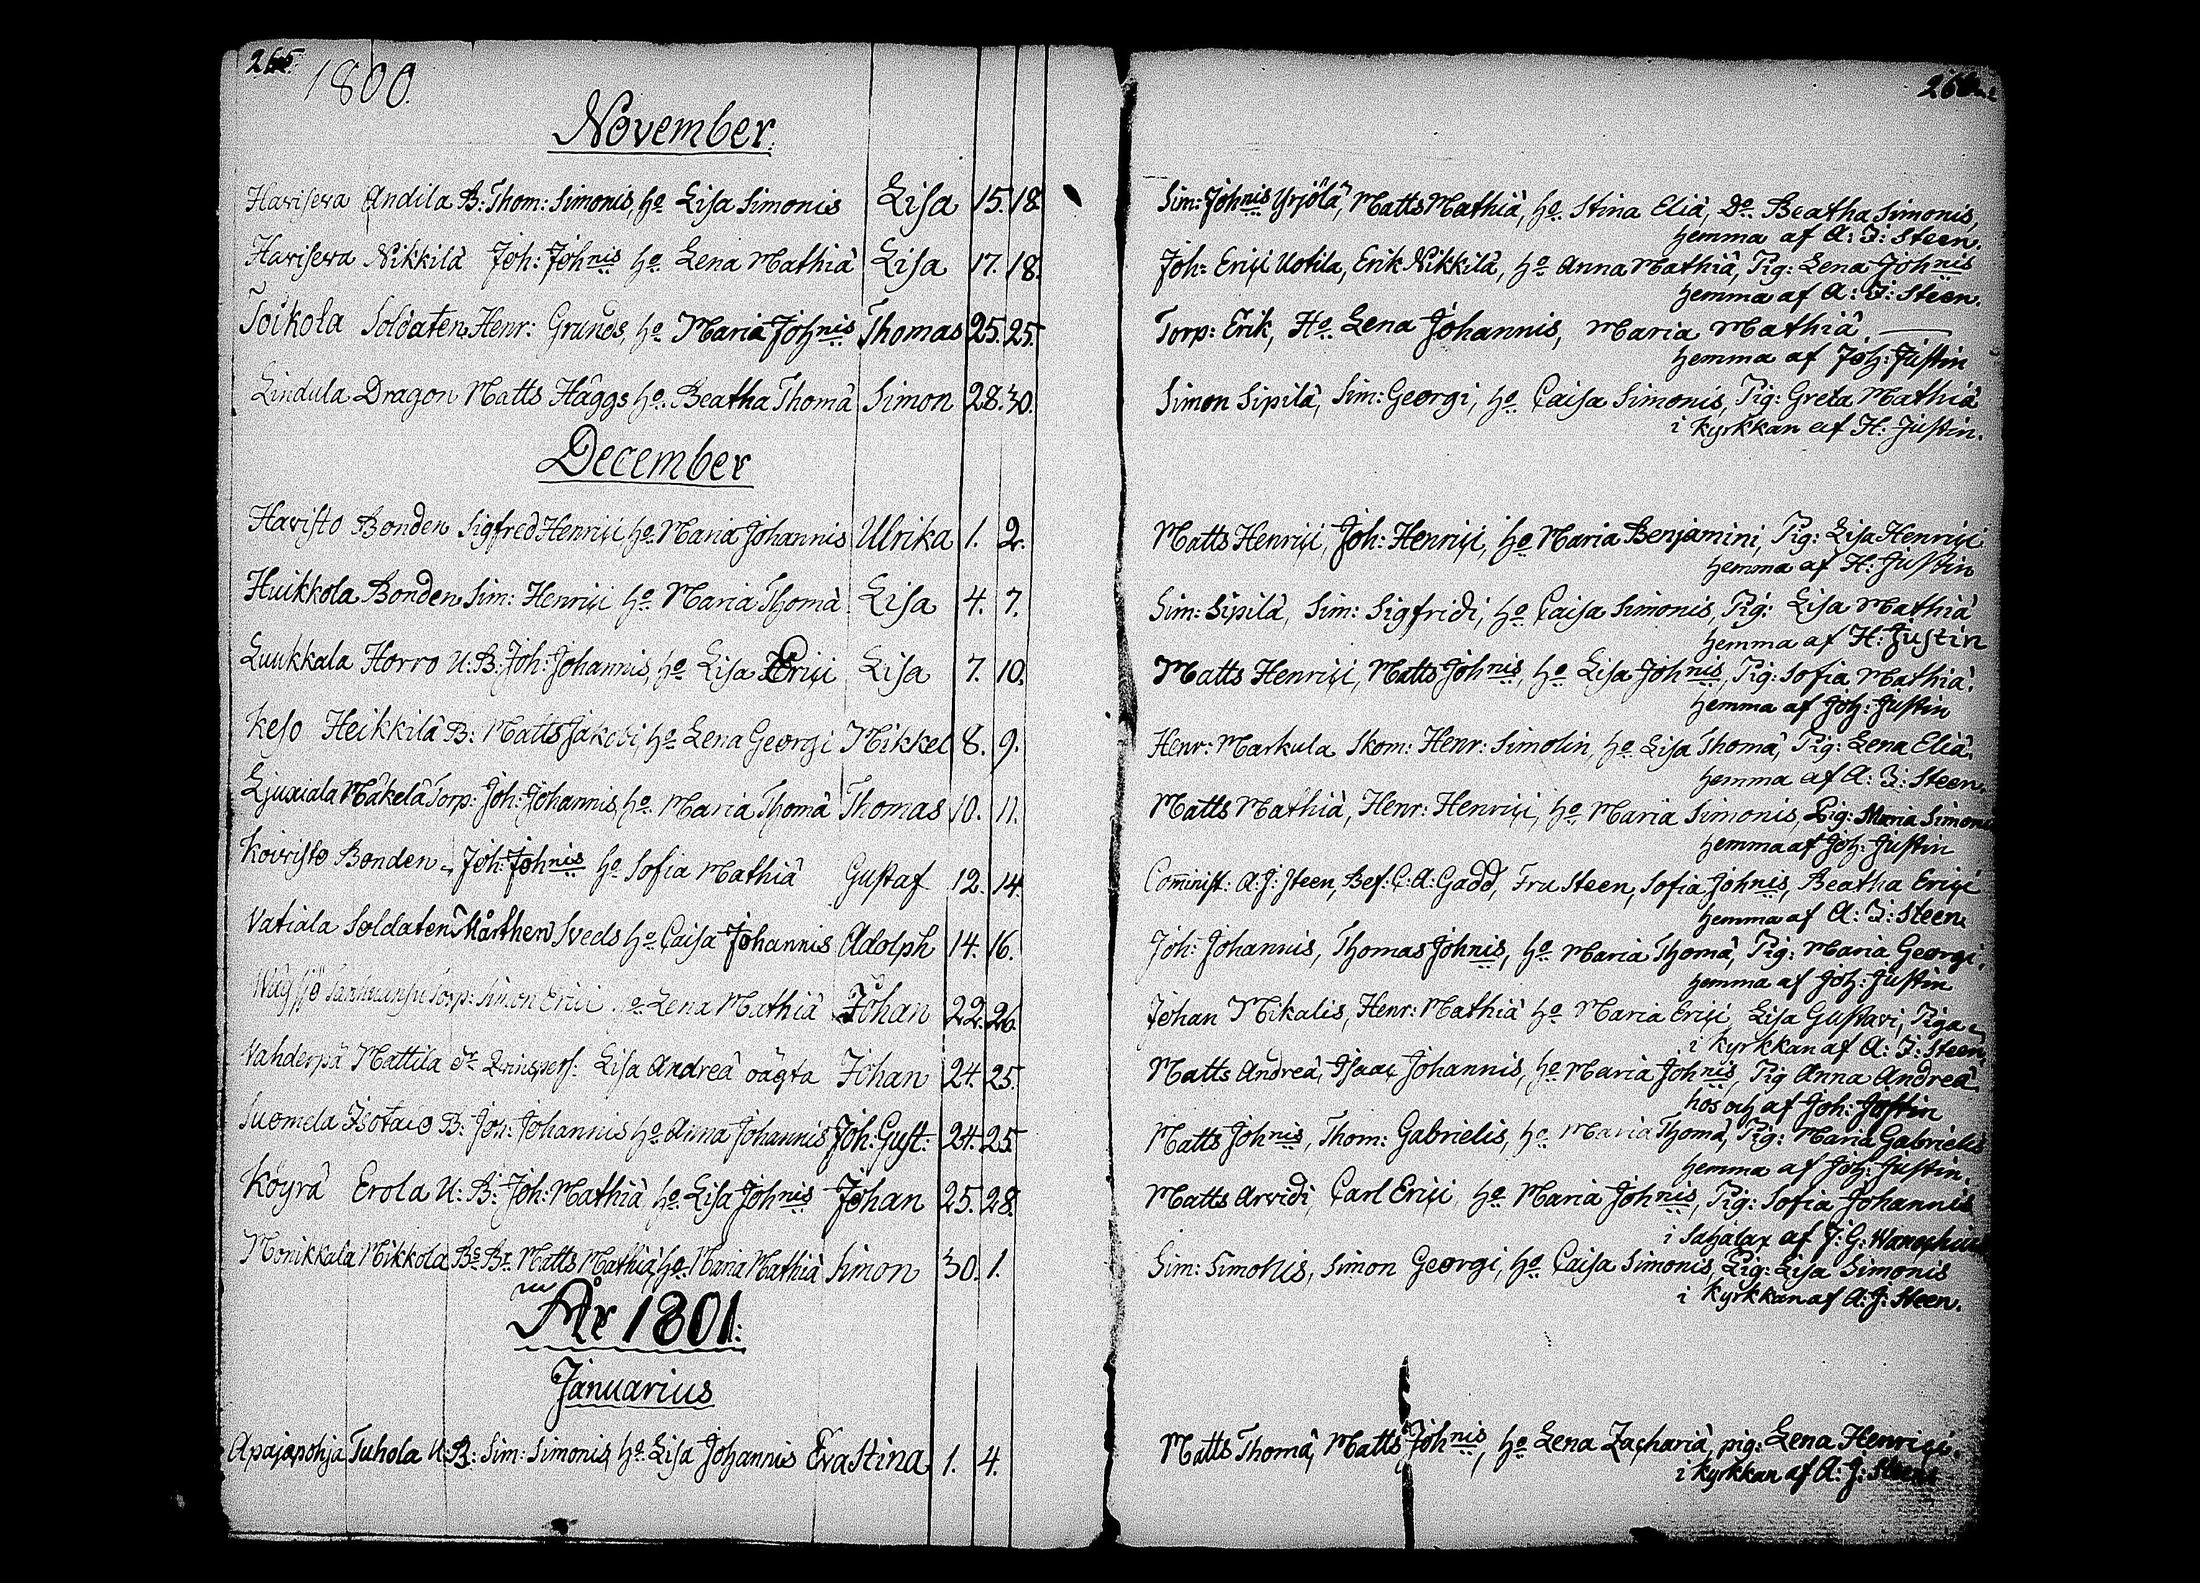 265.
1800.
November.
Havisera Andila B: Thom: Simonis, ho Lisa Simonis Lisa 15. 18.
Havisera Nikkilä Joh: Johnis ho Lena Mathiæ Lisa 17. 18.
Toikola Soldaten Henr: Grunds, ho Maria Johnis Thomas 25. 25.
Lindula Dragon Matts Häggs ho Beatha Thomæ Simon 28. 30.
December
Havisto Bonden Sigfred Henriçi ho Maria Johannis Ulrika 1. 2.
Huikkola Bonden Sim: Henriçi ho Maria Thomæ Lisa 4. 7.
Luukkala Horro U: B: Joh: Johannis, ho Lisa Eriçi Lisa 7. 10.
Keso Heikkilä B: Matts Jakobi, ho Lena Georgi Mikkel 8. 9.
Ljuxiala Mäkelä Torp: Joh: Johannis, ho Maria Thomæ Thomas 10. 11.
Koivisto Bonden Joh: Johnis ho Sofia Mathiæ Gustaf 12. 14.
Vatiala Soldaten Mårthen Sveds ho Caisa Johannis Adolph 14. 16.
Torp: Simon Eriçi ho Lena Mathiæ Johan 22. 26.
Vahderpä Mattila Lisa Andreæ oägta Johan 24. 25.
Suomela Isotalo B: Joh: Johannis ho Anna Johannis Joh: Gust: 24. 25.
Köyrä Erola U: B: Joh: Mathiæ, ho Lisa Johnis Johan 25. 28.
Monikkala Mikkola Bs Br Matts Mathiæ, ho Maria Mathiæ Simon 30. 1.
År 1801.
Januarius
Apajapohja Tuhola U: B: Sim: Simonis, ho Lisa Johannis Eva Stina 1. 4.
Sim: Johnis Yrjölä, Matts Mathiæ, ho Stina Eliæ, Do Beatha Simonis,
hemma af A: J: Steen.
Joh: Eriçi Uotila, Erik Nikkilä, ho Anna Mathiæ, Pig: Lena Johnis
hemma af A: J: Steen.
Torp: Erik, Ho Lena Johannis, Maria Mathiæ
hemma af Joh: Justin
Simon Sipilä, Sim: Georgi, ho Caisa Simonis, Pig: Greta Mathiæ
i kyrkkan af H: Justin.
Matts Henriçi, Joh: Henriçi, ho Maria Benjamini, Pig: Lisa Henriçi
hemma af H: Justin
Sim: Sipilä, Sim: Sigfridi, ho Caisa Simonis, Pig: Lisa Mathiæ
hemma af H: Justin
Matts Henriçi, Matts Johnis, ho Lisa Johnis, Pig: Sofia Mathiæ.
hemma af Joh: Justin
Henr: Markula Skom: Henr: Simolin, ho Lisa Thomæ, Pig: Lena Eliæ.
hemma af A: J: Steen.
Matts Mathiæ, Henr: Henriçi, ho Maria Simonis, Pig: Maria Simonis
hemma af Joh: Justin
Cominist: A: J: Steen, Bef: C: A: Gadd, Fru Steen, Sofia Johnis, Beatha Eriçi
hemma af A: J: Steen
Joh: Johannis, Thomas Johnis, ho Maria Thomæ, Pig: Maria Georgi.
hemma af Joh: Justin
Johan Mikalis, Henr: Mathiæ ho Maria Eriçi Lisa Gustavi, Piga
i kyrkkan af A: J: Steen
Matts Andreæ, Isaaç Johannis, ho Maria Johnis, Pig Anna Andreæ.
hos och af Joh: Justin
Matts Johnis, Thom: Gabrielis, ho Maria Thomæ, Pig: Maria Gabrielis
hemma af Joh: Justin.
Matts Arvidi, Carl Eriçi, ho Maria Johnis, Pig: Sofia Johannis
i Sahalax af J: G:
Sim: Simonis, Simon Georgi, ho Caisa Simonis Pig: Lisa Simonis
i kyrkkan af A: J: Steen.
Matts Thomæ, Matts Johnis, ho Lena Zachariæ, pig: Lena Henriçi.
i kyrkkan af A: J: Steen